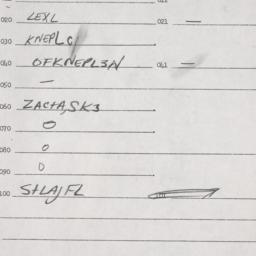 020 LEXL 021 —
030 KNEPLG
040 OFKNEPL3N 041 —
050 —
060 ZACTA,SK3
070 0
080 0
090 0
100 StLAJFL